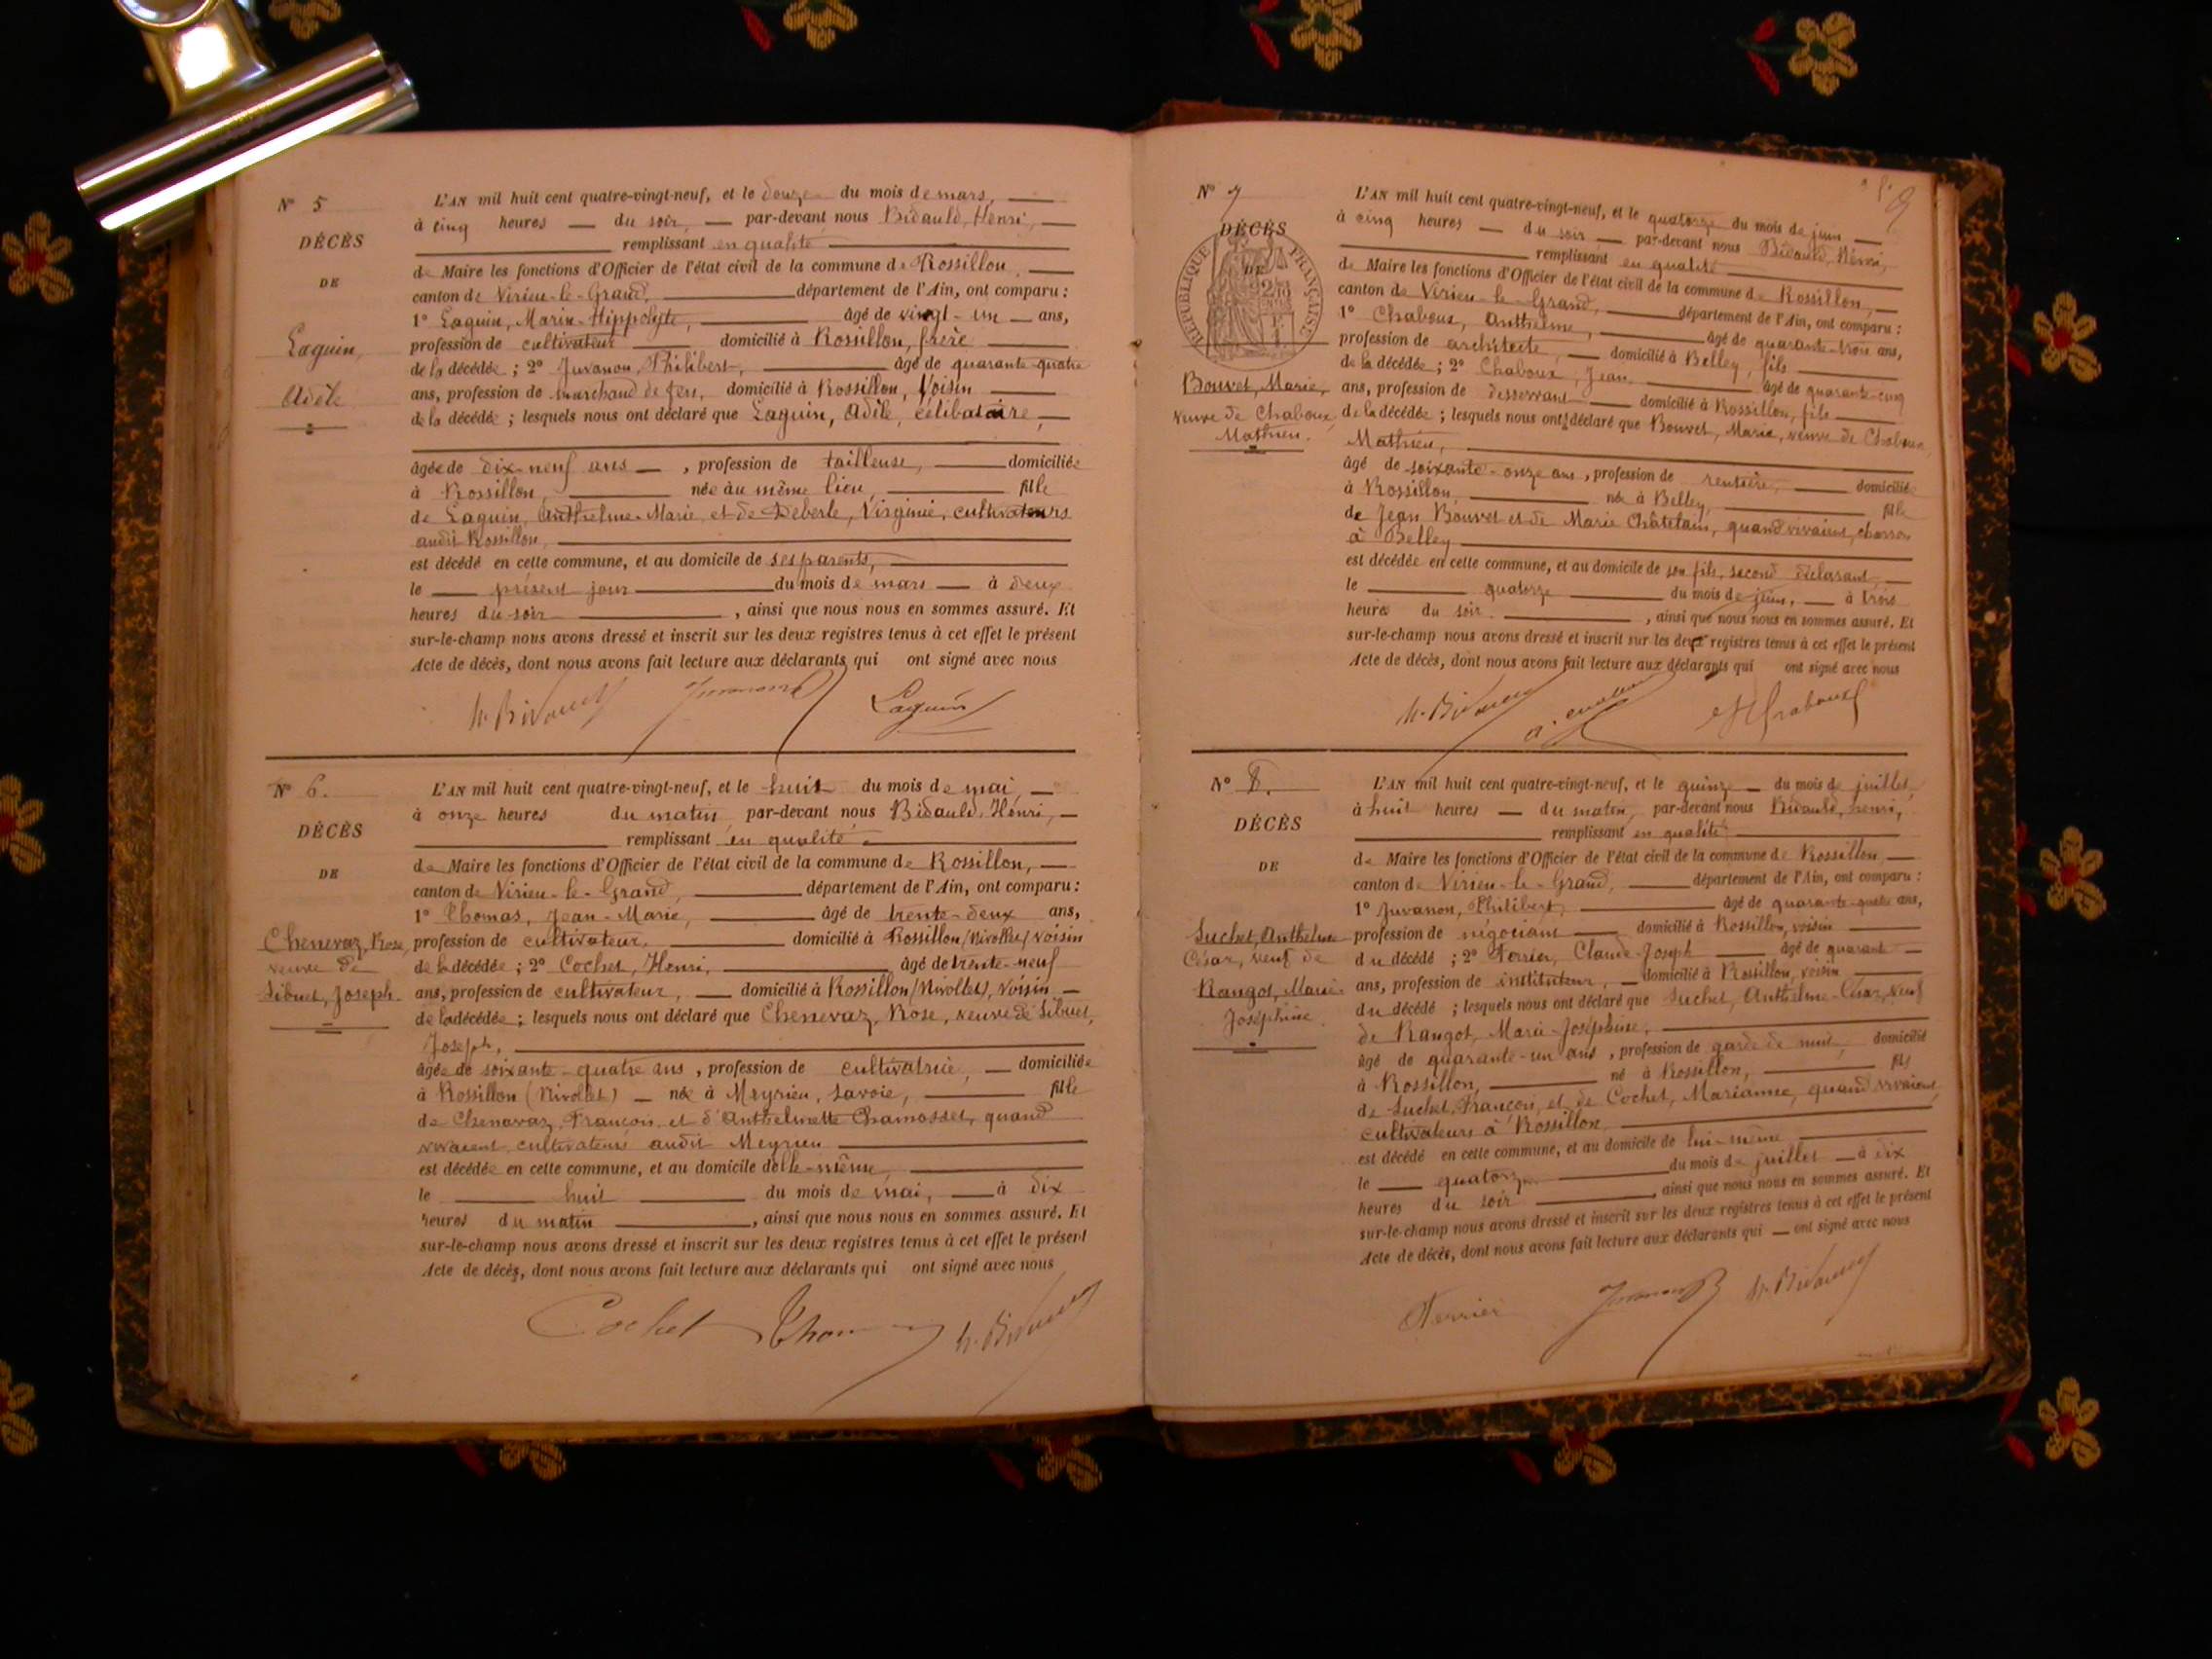 N° 5
DÉCÈS
DE
Laguin,
Adèle
L'AN mil huit cent quatre-vingt-neuf, et le douze du mois de mars,
à cinq heures du soir, par-devant nous Bidauld, Henri,
remplissant en qualité
de Maire les fonctions d'Officier de l'état civil de la commune de Rossillon,
canton de Virieu-le-Grand, département de l'Ain, ont comparu :
1° Laguin, Marin-Hippolyte, âgé de vingt-un ans,
profession de cultivateur domicilié à Rossillon, frère
de la décédée ; 2° Juvanon, Philibert, âgé de quarante-quatre
ans, profession de marchand de fer, domicilié à Rossillon, Voisin
de la décédée ; lesquels nous ont déclaré que Laguin, Adèle, célibataire,
âgée de dix-neuf ans, profession de tailleuse, domiciliée
à Rossillon, née au même lieu, fille
de Laguin, Anthelme-Marie et de Deberle, Virginie, cultivateurs
audit Rossillon,
est décédée en cette commune, et au domicile de ses parents,
le présent jour du mois de mars à deux
heures du soir, ainsi que nous nous en sommes assuré. Et
sur-le-champ nous avons dressé et inscrit sur les deux registres tenus à cet effet le présent
Acte de décès, dont nous avons fait lecture aux déclarants qui ont signé avec nous
H. Bidauld Juvanon Laguin
N° 6.
DÉCÈS
DE
Chenevaz, Rose,
veuve de
Sibuet, Joseph.
L'AN mil huit cent quatre-vingt-neuf, et le huit du mois de mai
à onze heures du matin par-devant nous Bidauld, Henri,
remplissant en qualité
de Maire les fonctions d'Officier de l'état civil de la commune de Rossillon,
canton de Virieu-le-Grand, département de l'Ain, ont comparu :
1° Thomas, Jean-Marie, âgé de trente-deux ans,
profession de cultivateur, domicilié à Rossillon (Nivollet) voisin
de la décédée ; 2° Cochet, Henri, âgé de trente-neuf
ans, profession de cultivateur, domicilié à Rossillon (Nivollet), voisin
de la décédée ; lesquels nous ont déclaré que Chenevaz, Rose, veuve de Sibuet,
Joseph,
âgée de soixante-quatre ans, profession de cultivatrice, domiciliée
à Rossillon (Nivollet) née à Meyrieu, Savoie, fille
de Chenavaz, François et d'Anthelmette Chamosset, quand
vivaient cultivateurs audit Meyrieu
est décédée en cette commune, et au domicile d'elle-même,
le huit du mois de mai, à dix
heures du matin, ainsi que nous nous en sommes assuré. Et
sur-le-champ nous avons dressé et inscrit sur les deux registres tenus à cet effet le présent
Acte de décès, dont nous avons fait lecture aux déclarants qui ont signé avec nous
Cochet Thomas H. Bidauld
N° 7
DÉCÈS
DE
RÉPUBLIQUE FRANÇAISE
Bouvet, Marie,
veuve de Chaboux,
Mathieu.
L'AN mil huit cent quatre-vingt-neuf, et le quatorze du mois de juin
à cinq heures du soir par-devant nous Bidauld, Henri,
remplissant en qualité
de Maire les fonctions d'Officier de l'état civil de la commune de Rossillon,
canton de Virieu-le-Grand, département de l'Ain, ont comparu :
1° Chaboux, Anthelme, âgé de quarante-trois ans,
profession de architecte, domicilié à Belley, fils
de la décédée ; 2° Chaboux, Jean âgé de quarante-cinq
ans, profession de desservant domicilié à Rossillon, fils
de la décédée ; lesquels nous ont déclaré que Bouvet, Marie, veuve de Chaboux,
Mathieu,
âgé de soixante-onze ans, profession de rentière, domicilié
à Rossillon, née à Belley, fille
de Jean Bouvet et de Marie Châtelain, quand vivaient, charron
à Belley
est décédée en cette commune, et au domicile de son fils, second déclarant,
le quatorze du mois de juin, à trois
heures du soir, ainsi que nous nous en sommes assuré. Et
sur-le-champ nous avons dressé et inscrit sur les deux registres tenus à cet effet le présent
Acte de décès, dont nous avons fait lecture aux déclarants qui ont signé avec nous
H. Bidauld Chaboux
N° 8.
DÉCÈS
DE
Suchet, Anthelme
César, veuf de
Rangot, Marie-
Joséphine
L'AN mil huit cent quatre-vingt-neuf, et le quinze du mois de juillet,
à huit heures du matin, par-devant nous Bidauld, Henri,
remplissant en qualité
de Maire les fonctions d'Officier de l'état civil de la commune de Rossillon
canton de Virieu-le-Grand, département de l'Ain, ont comparu :
1° Juvanon, Philibert, âgé de quarante-quatre ans,
profession de négociant domicilié à Rossillon, voisin
du décédé ; 2° Ferrier, Claude-Joseph âgé de quarante
ans, profession de instituteur, domicilié à Rossillon, voisin
du décédé ; lesquels nous ont déclaré que Suchet, Anthelme-César, veuf
de Rangot, Marie-Joséphine,
âgé de quarante-un ans, profession de garde de nuit, domicilié
à Rossillon, né à Rossillon, fils
de Suchet, François, et de Cochet, Marianne, quand vivaient
cultivateurs à Rossillon
est décédé en cette commune, et au domicile de lui-même
le quatorze du mois de juillet à dix
heures du soir, ainsi que nous nous en sommes assuré. Et
sur-le-champ nous avons dressé et inscrit sur les deux registres tenus à cet effet le présent
Acte de décès, dont nous avons fait lecture aux déclarants qui ont signé avec nous
Ferrier Juvanon H. Bidauld